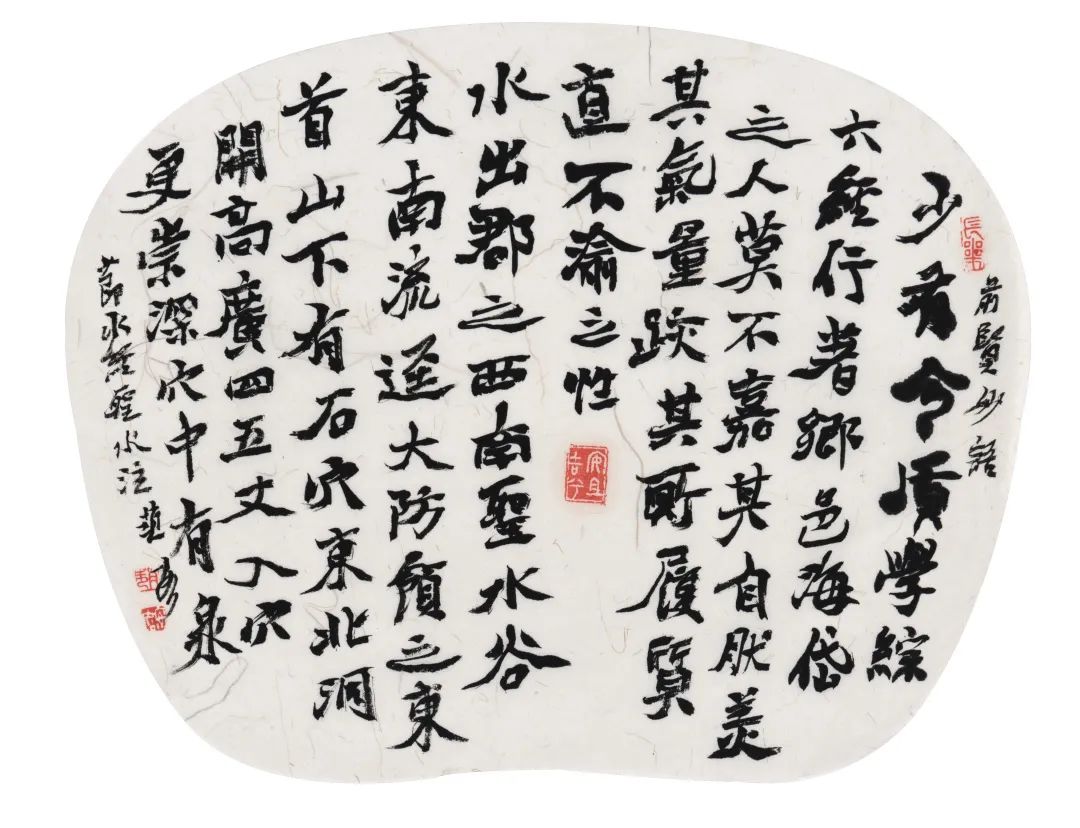 長樂
前賢妙語
少有令貭學綜
六經行著鄉邑海岱
之人莫不嘉其自然美
其氣量跂其所履質
直不渝之性
安且吉兮
水出郡之西南聖水谷
東南流逕大防嶺之東
首山下有石穴東北洞
開高廣四五丈入穴
更崇深穴中有泉
節水經聖水注